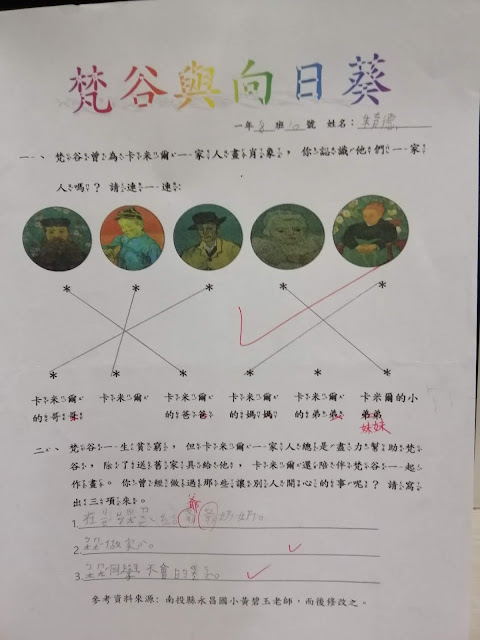 梵谷與向日葵
一年8班10號 姓名：
一、梵谷曾為卡米爾一家人畫肖象，你認識他們一家
人嗎？請連一連
卡米爾的哥哥 卡米爾 卡米爾的爸爸 卡米爾的媽媽 卡米爾的弟弟 卡米爾的小弟弟
妹妹
二、梵谷一生貧窮，但卡米爾一家人總是盡力幫助梵
谷，除了送舊家具給他，卡米爾還陪伴梵谷一起
作畫。你曾經做過那些讓別人開心的事呢？請寫
出三項來。
爺
1. 在
2. 做實心。
3. 同學不會的
參考資料來源：南投縣永昌國小黃碧玉老師，而後修改之。